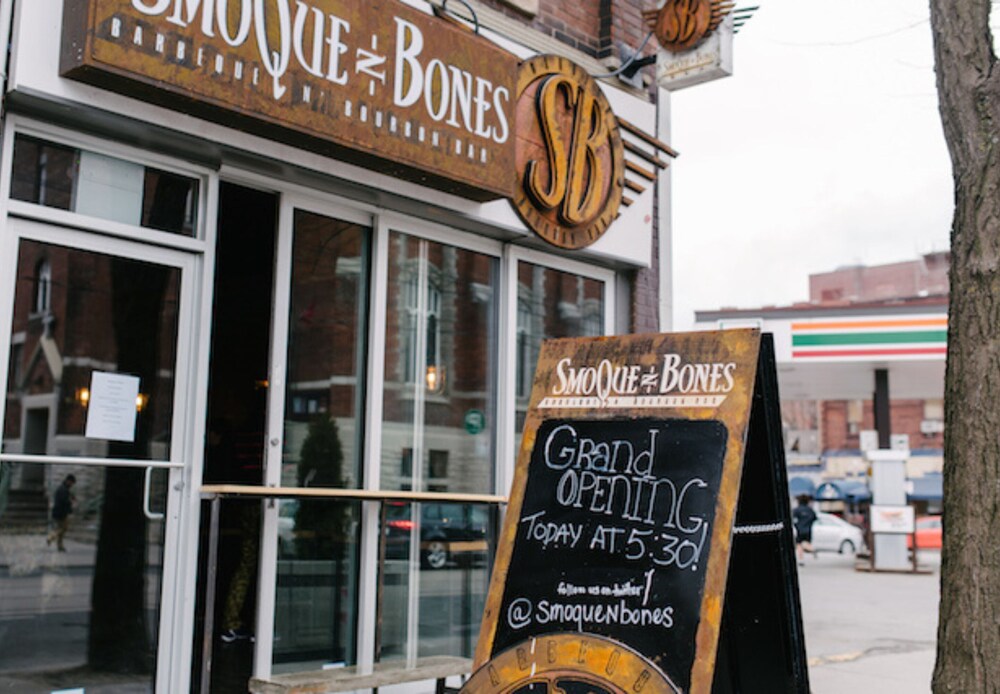 SMOQUE N BONES
BARBEQUE N' BOURBON BAR
SB
SB
SMOQUE N BONES
Grand
OPENING
TODAY AT 5:30!
follow us on twitter
@smoquenbones
BARBEQ